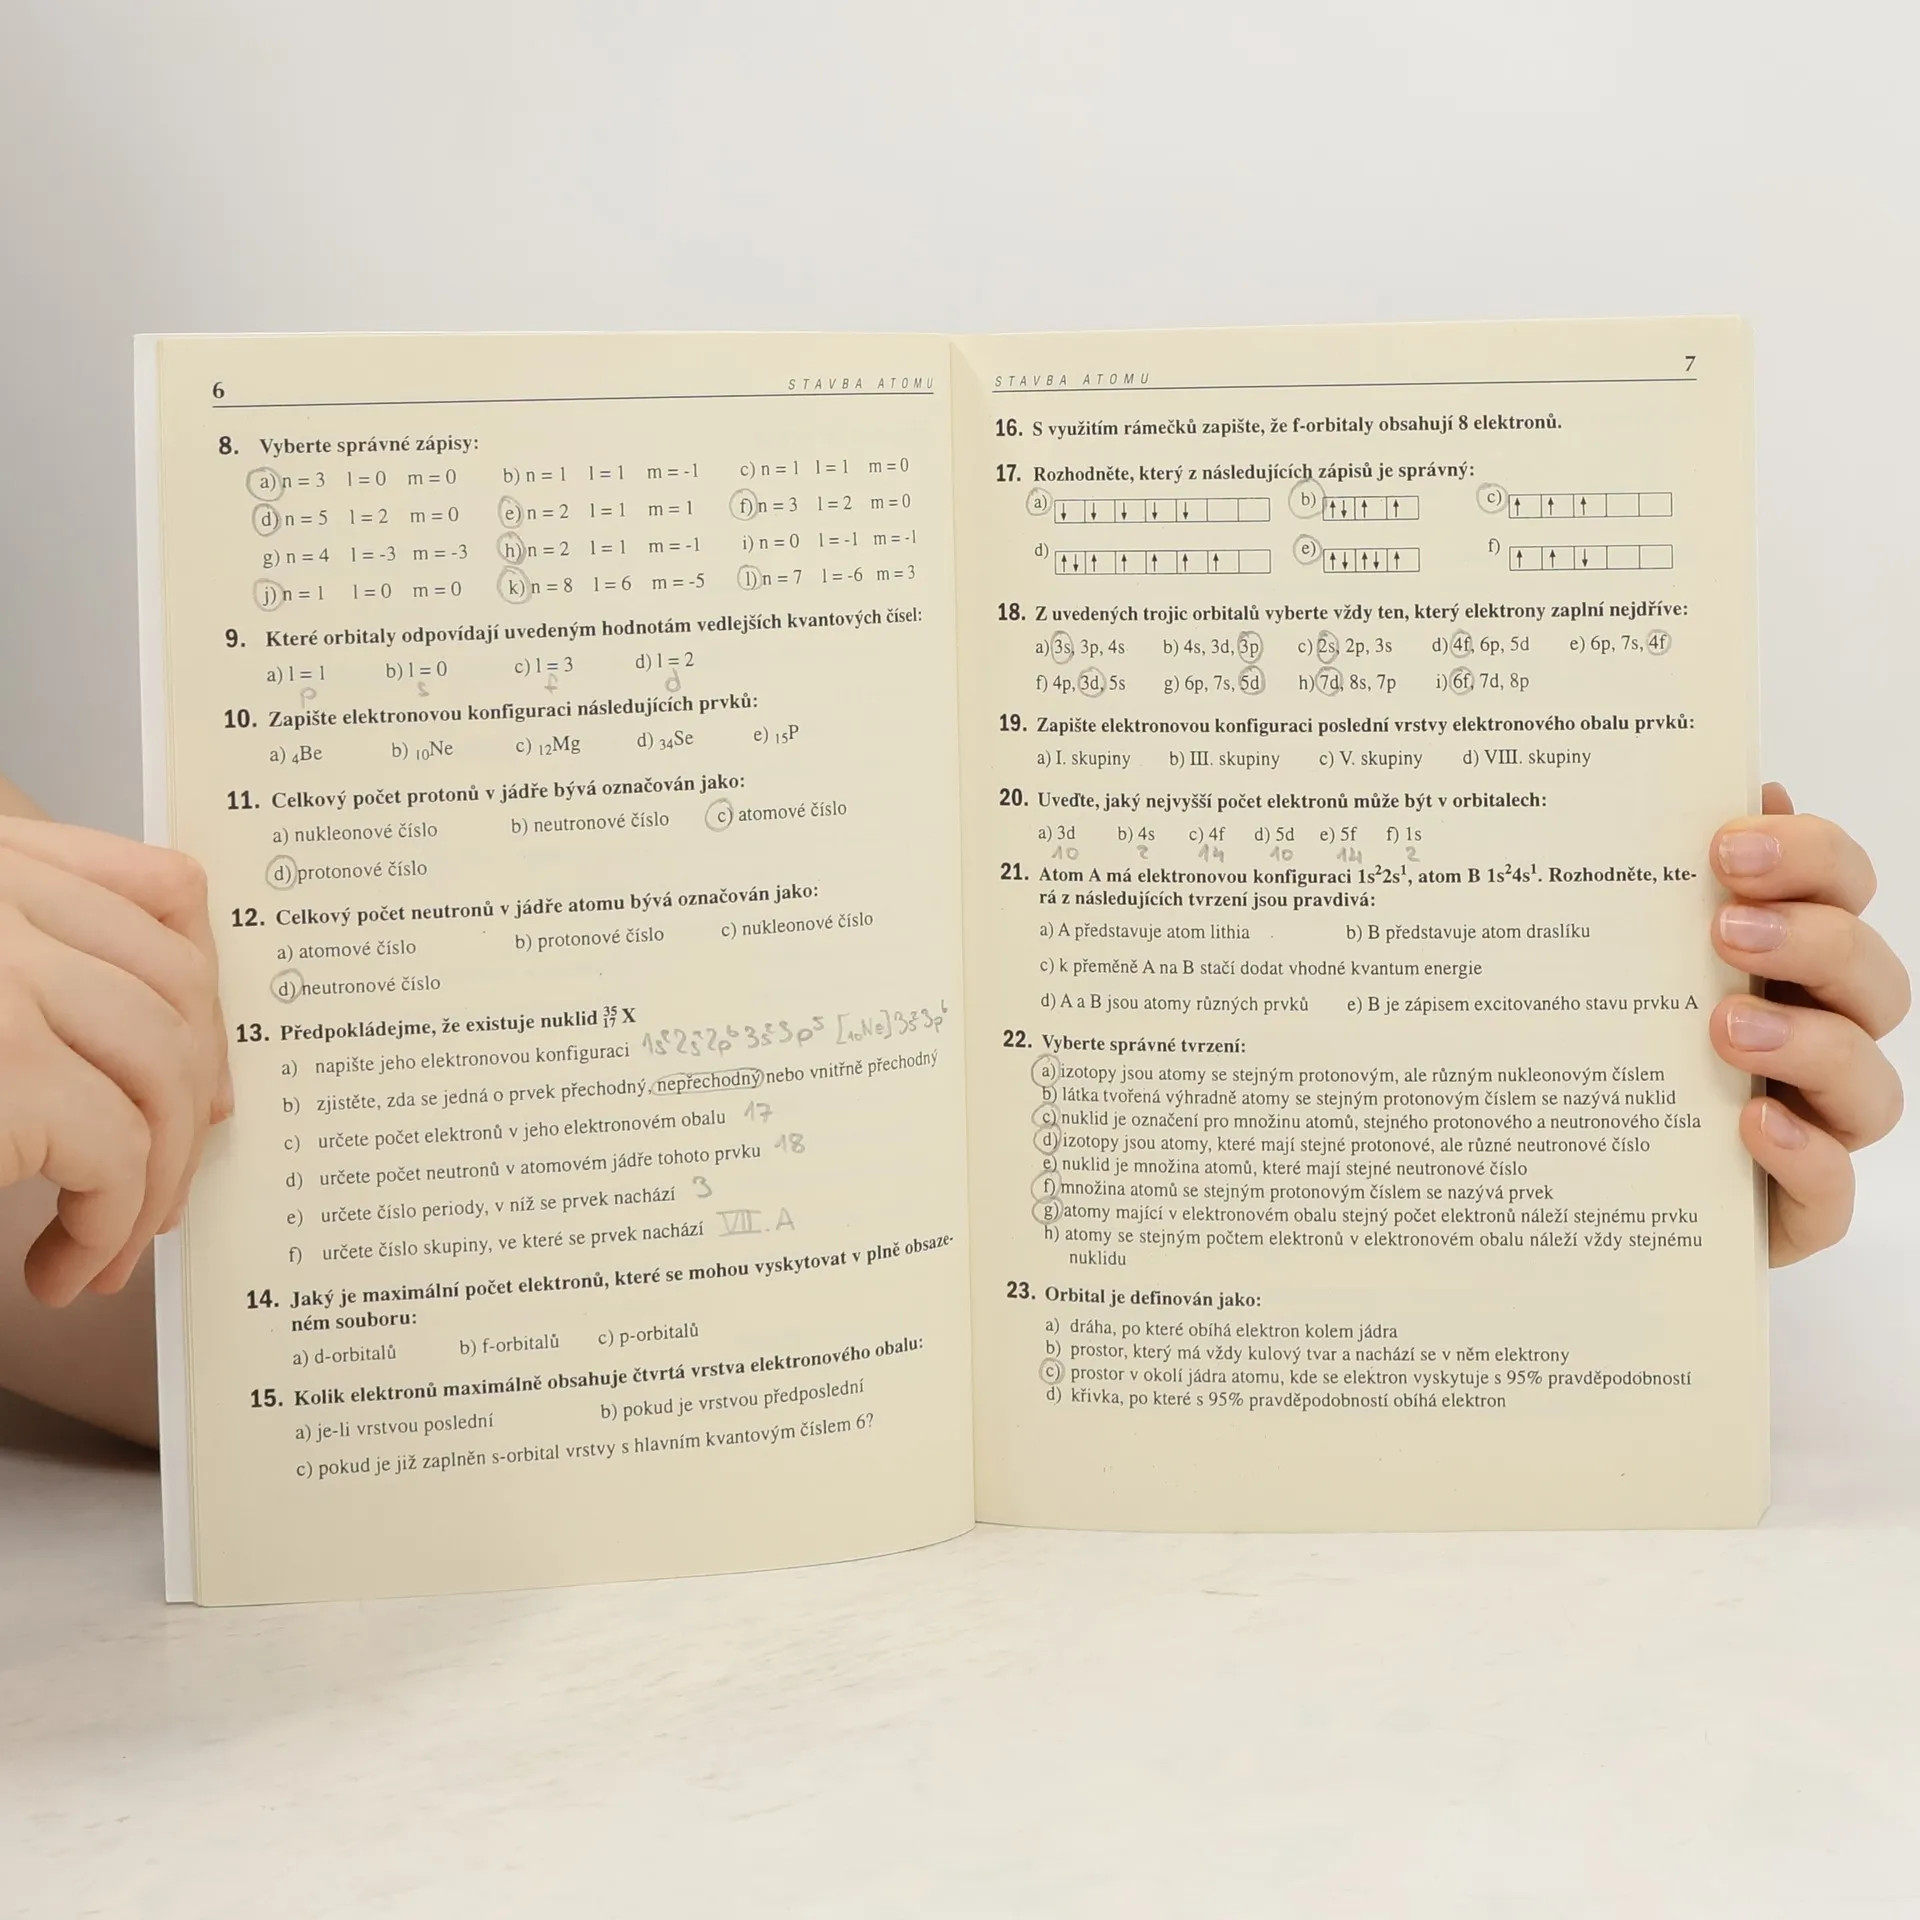 6
STAVBA ATOMU
8. Vyberte správné zápisy:
a) n = 3 l = 0 m = 0 b) n = 1 l = 1 m = -1 c) n = 1 l = 1 m = 0
d) n = 5 l = 2 m = 0 e) n = 2 l = 1 m = 1 f) n = 3 l = 2 m = 0
g) n = 4 l = -3 m = -3 h) n = 2 l = 1 m = -1 i) n = 0 l = -1 m = -1
j) n = 1 l = 0 m = 0 k) n = 8 l = 6 m = -5 l) n = 7 l = -6 m = 3
9. Které orbitaly odpovídají uvedeným hodnotám vedlejších kvantových čísel:
a) l = 1 b) l = 0 c) l = 3 d) l = 2
p s f d
10. Zapište elektronovou konfiguraci následujících prvků:
a) ₄Be b) ₁₀Ne c) ₁₂Mg d) ₃₄Se e) ₁₅P
11. Celkový počet protonů v jádře bývá označován jako:
a) nukleonové číslo b) neutronové číslo c) atomové číslo
d) protonové číslo
12. Celkový počet neutronů v jádře atomu bývá označován jako:
a) atomové číslo b) protonové číslo c) nukleonové číslo
d) neutronové číslo
13. Předpokládejme, že existuje nuklid ³⁵₁₇X
a) napište jeho elektronovou konfiguraci 1s²2s²2p⁶3s²3p⁵ [₁₀Ne]3s²3p⁶
b) zjistěte, zda se jedná o prvek přechodný, nepřechodný nebo vnitřně přechodný
c) určete počet elektronů v jeho elektronovém obalu 17
d) určete počet neutronů v atomovém jádře tohoto prvku 18
e) určete číslo periody, v níž se prvek nachází 3
f) určete číslo skupiny, ve které se prvek nachází VII.A
14. Jaký je maximální počet elektronů, které se mohou vyskytovat v plně obsaze-
ném souboru:
a) d-orbitalů b) f-orbitalů c) p-orbitalů
15. Kolik elektronů maximálně obsahuje čtvrtá vrstva elektronového obalu:
a) je-li vrstvou poslední b) pokud je vrstvou předposlední
c) pokud je již zaplněn s-orbital vrstvy s hlavním kvantovým číslem 6?
STAVBA ATOMU
7
16. S využitím rámečků zapište, že f-orbitaly obsahují 8 elektronů.
17. Rozhodněte, který z následujících zápisů je správný:
a) ↓ ↓ ↓ ↓ ↓ b) ↑↓ ↑ ↑ c) ↑ ↑ ↑
d) ↑↓ ↑ ↑ ↑ ↑ ↑ e) ↑↓ ↑↓ ↑ f) ↑ ↑ ↓
18. Z uvedených trojic orbitalů vyberte vždy ten, který elektrony zaplní nejdříve:
a) 3s, 3p, 4s b) 4s, 3d, 3p c) 2s, 2p, 3s d) 4f, 6p, 5d e) 6p, 7s, 4f
f) 4p, 3d, 5s g) 6p, 7s, 5d h) 7d, 8s, 7p i) 6f, 7d, 8p
19. Zapište elektronovou konfiguraci poslední vrstvy elektronového obalu prvků:
a) I. skupiny b) III. skupiny c) V. skupiny d) VIII. skupiny
20. Uveďte, jaký nejvyšší počet elektronů může být v orbitalech:
a) 3d b) 4s c) 4f d) 5d e) 5f f) 1s
10 2 14 10 14 2
21. Atom A má elektronovou konfiguraci 1s²2s¹, atom B 1s²4s¹. Rozhodněte, kte-
rá z následujících tvrzení jsou pravdivá:
a) A představuje atom lithia b) B představuje atom draslíku
c) k přeměně A na B stačí dodat vhodné kvantum energie
d) A a B jsou atomy různých prvků e) B je zápisem excitovaného stavu prvku A
22. Vyberte správné tvrzení:
a) izotopy jsou atomy se stejným protonovým, ale různým nukleonovým číslem
b) látka tvořená výhradně atomy se stejným protonovým číslem se nazývá nuklid
c) nuklid je označení pro množinu atomů, stejného protonového a neutronového čísla
d) izotopy jsou atomy, které mají stejné protonové, ale různé neutronové číslo
e) nuklid je množina atomů, které mají stejné neutronové číslo
f) množina atomů se stejným protonovým číslem se nazývá prvek
g) atomy mající v elektronovém obalu stejný počet elektronů náleží stejnému prvku
h) atomy se stejným počtem elektronů v elektronovém obalu náleží vždy stejnému
nuklidu
23. Orbital je definován jako:
a) dráha, po které obíhá elektron kolem jádra
b) prostor, který má vždy kulový tvar a nachází se v něm elektrony
c) prostor v okolí jádra atomu, kde se elektron vyskytuje s 95% pravděpodobností
d) křivka, po které s 95% pravděpodobností obíhá elektron